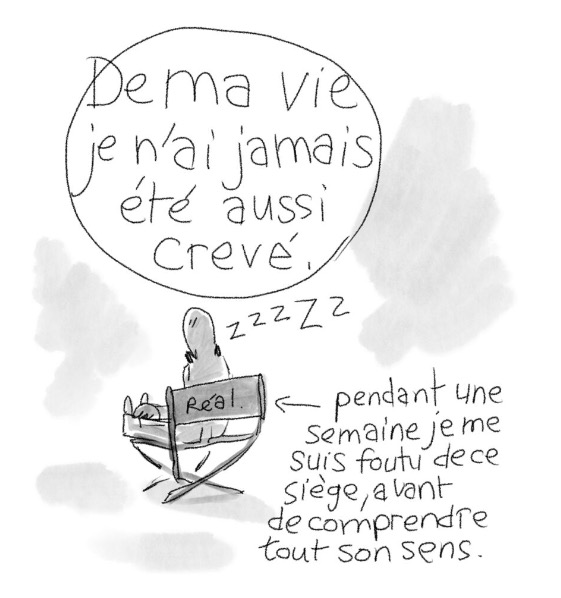 De ma vie
je n'ai jamais
été aussi
crevé.
zzzzz
Réal.
← pendant une
semaine je me
suis foutu de ce
siège, avant
de comprendre
tout son sens.